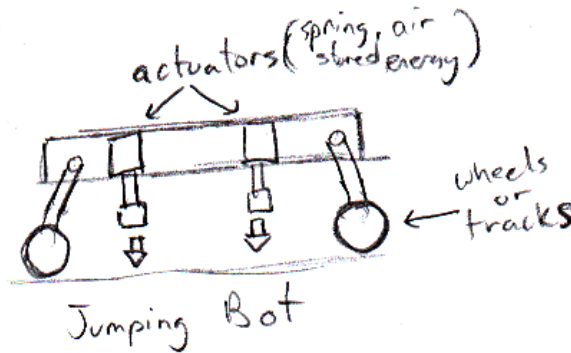 actuators (spring, air
stored energy)
wheels
or
tracks
Jumping Bot